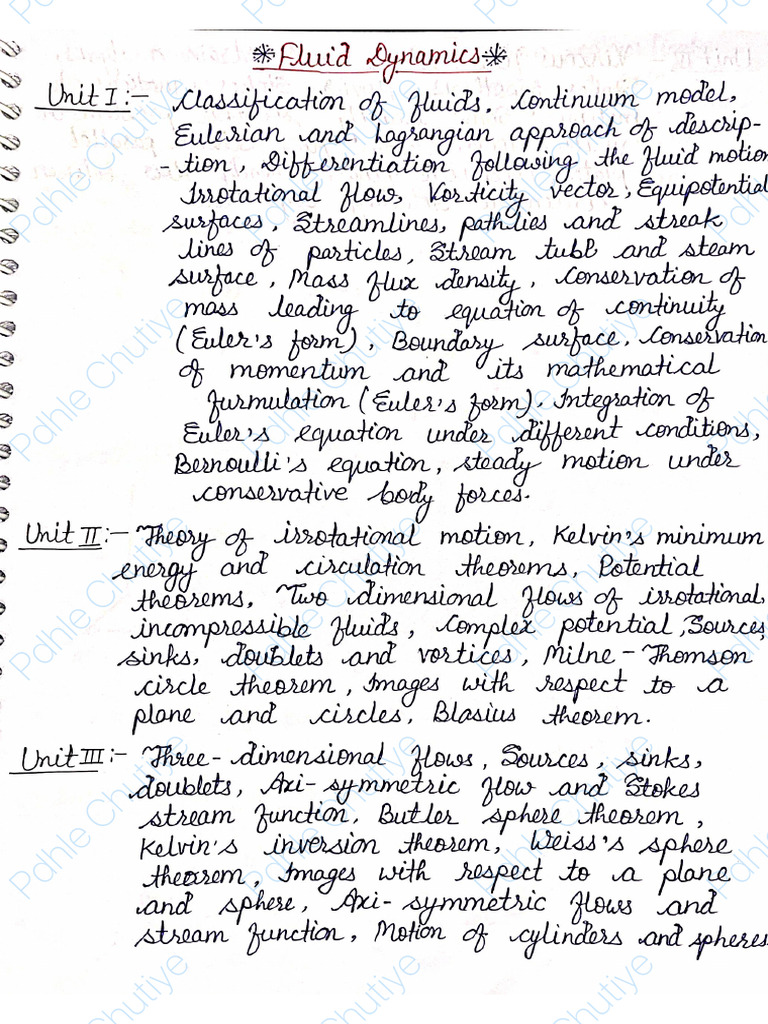 * Fluid Dynamics *
Unit I :- Classification of fluids, Continuum model,
Eulerian and Lagrangian approach of descrip-
-tion, Differentiation following the fluid motion
Irrotational flow, Vorticity vector, Equipotential
surfaces, Streamlines, pathlies and streak
lines of particles, Stream tube and steam
surface, Mass flux density, Conservation of
mass leading to equation of continuity
(Euler's form), Boundary surface, Conservation
of momentum and its mathematical
furmulation (Euler's form). Integration of
Euler's equation under different conditions,
Bernoulli's equation, steady motion under
conservative body forces.
Unit II :- Theory of irrotational motion, Kelvin's minimum
energy and circulation theorems, Potential
theorems, Two dimensional flows of irrotational,
incompressible fluids, Complex potential, Sources,
sinks, doublets and vortices, Milne-Thomson
circle theorem, Images with respect to a
plane and circles, Blasius theorem.
Unit III :- Three-dimensional flows, Sources, sinks,
doublets, Axi-symmetric flow and Stokes
stream function, Butler sphere theorem,
Kelvin's inversion theorem, Weiss's sphere
theorem, Images with respect to a plane
and sphere, Axi-symmetric flows and
stream function, Motion of cylinders and spheres
Pdhle Chutiye